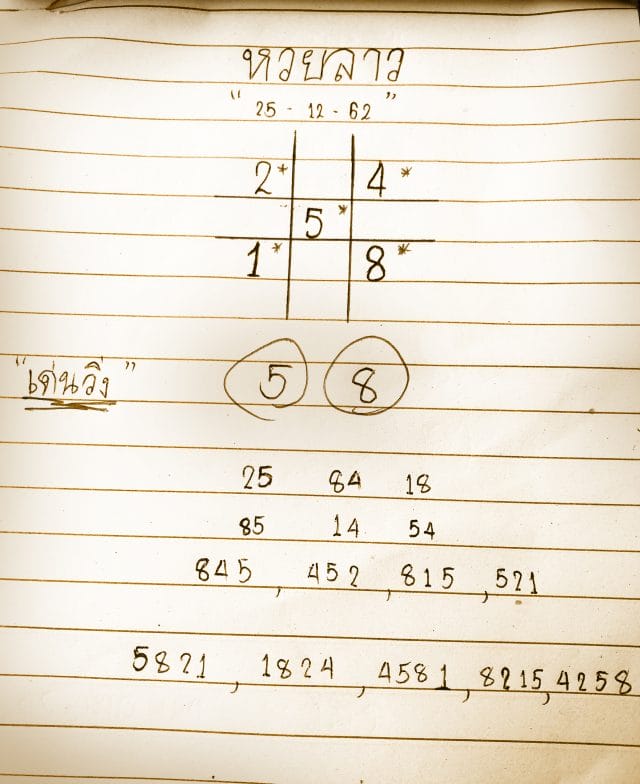 หวยลาว
" 25 - 12 - 62 "
2* 4*
5*
1* 8*
"เด่นวิ่ง" 5 8
25 84 18
85 14 54
845 , 452 , 815 , 521
5821 , 1824 , 4581 , 8215 , 4258